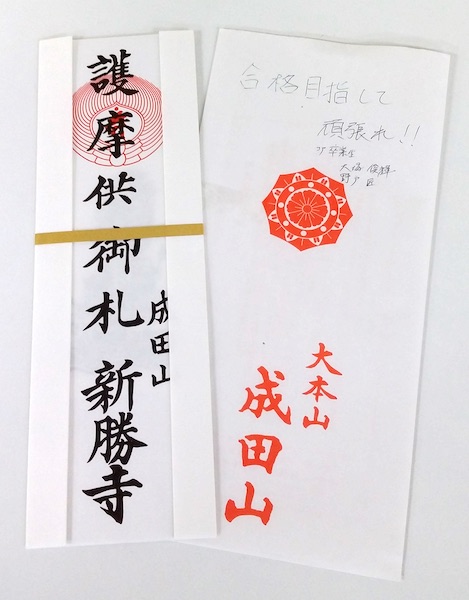 護摩供御札
成田山
新勝寺
合格目指して
頑張れ!!
大本山
成田山